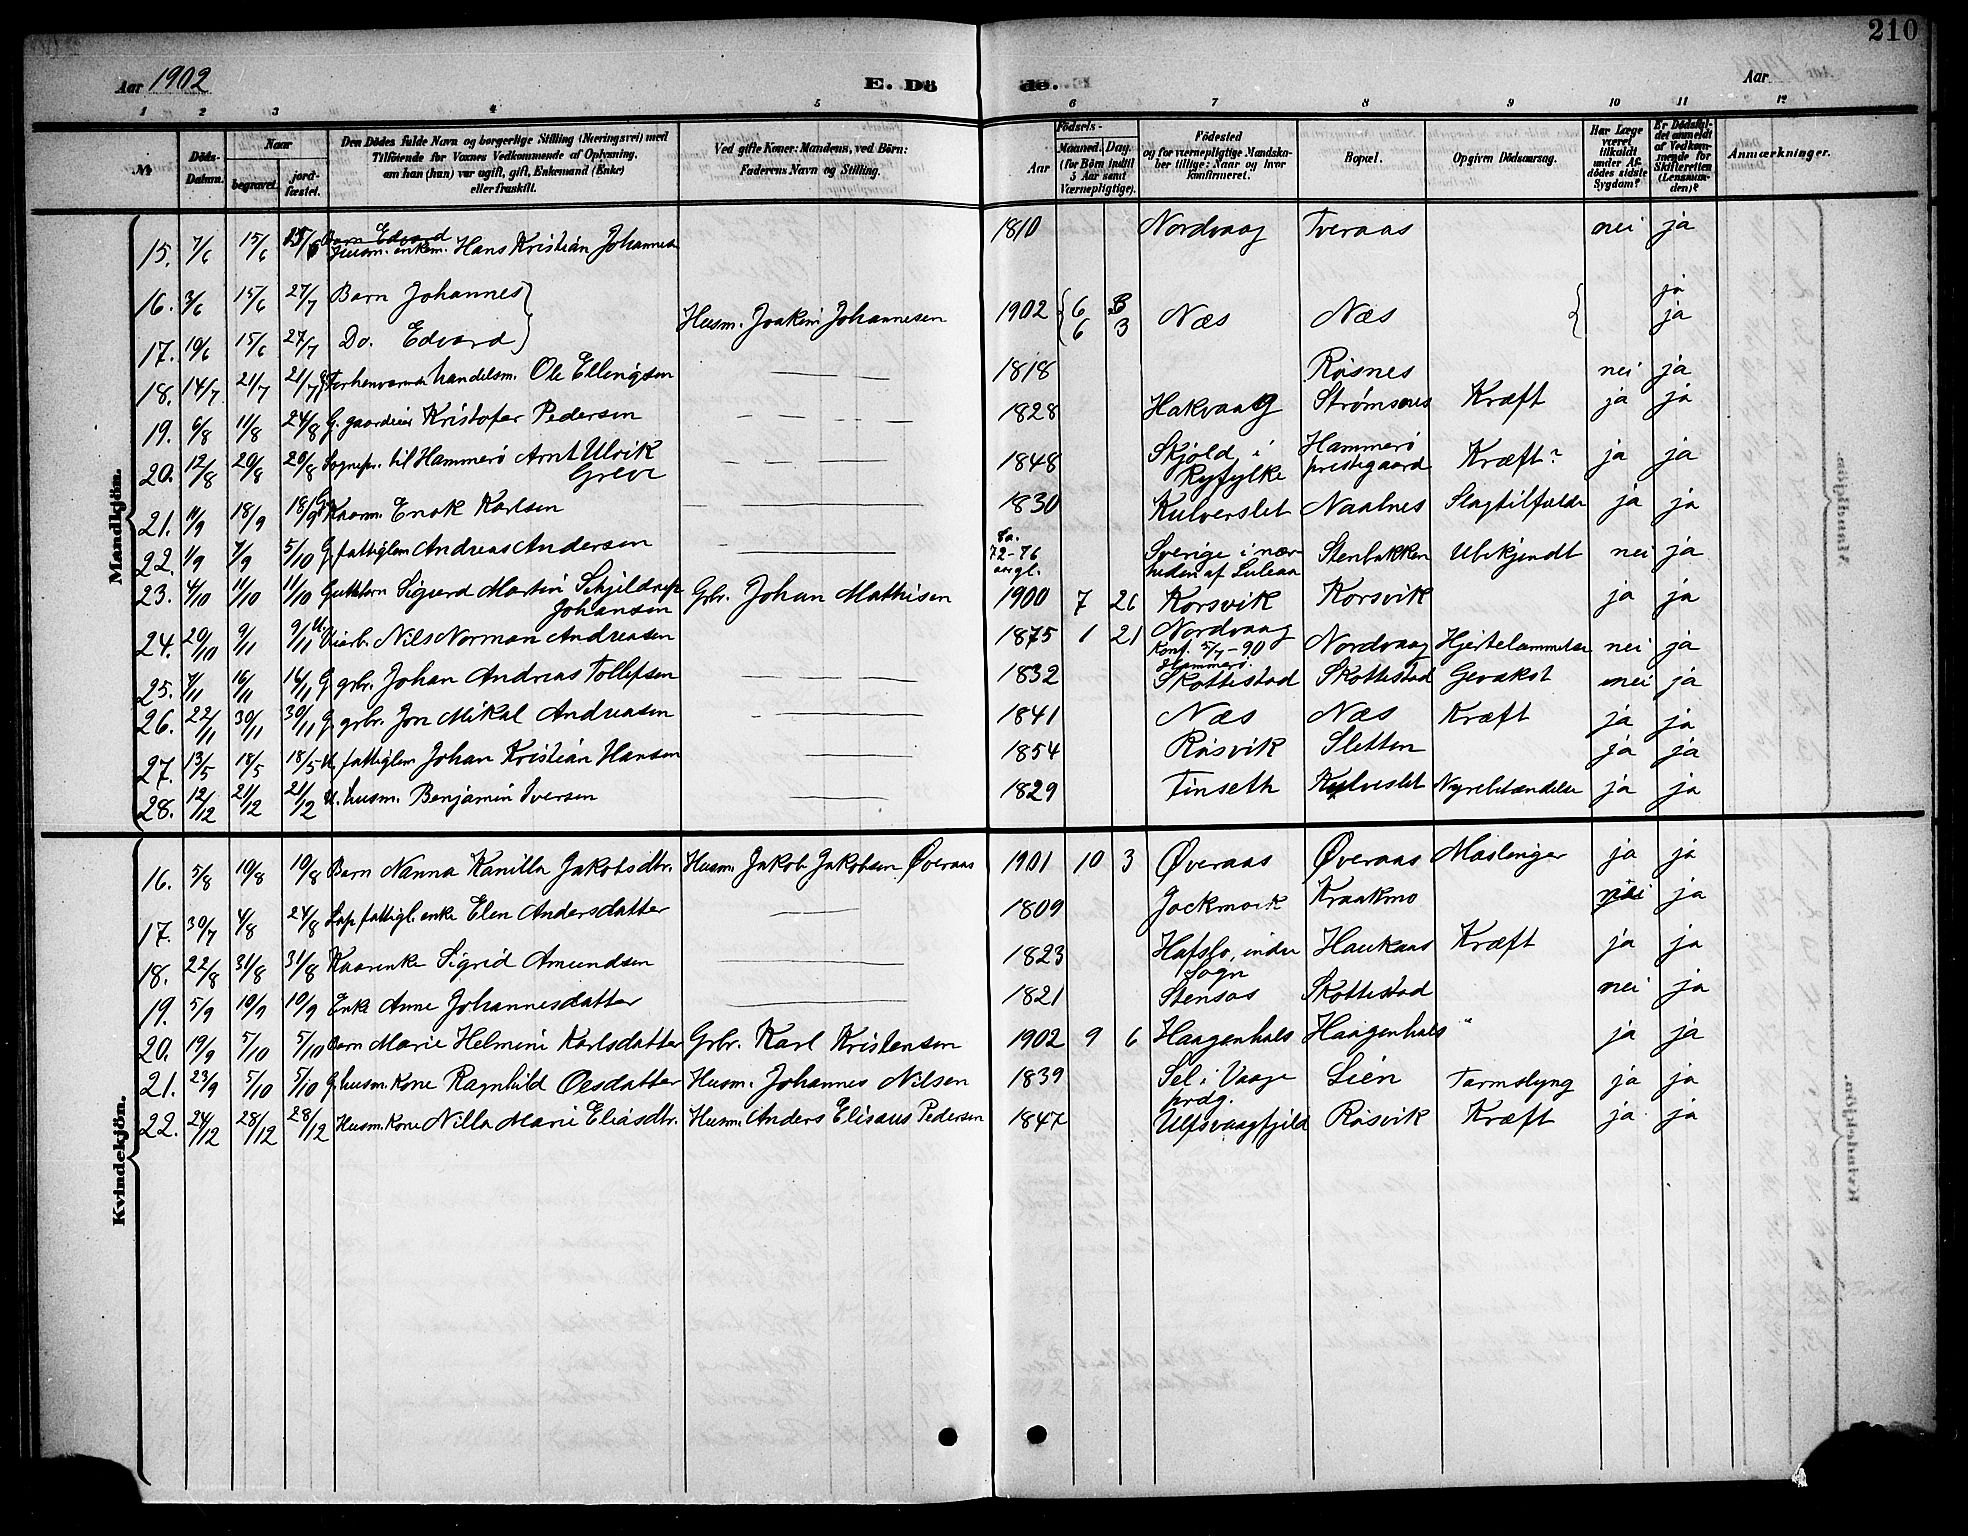 210
Aar 1902 E. Dö
de. Aar
1 2 3 4 5 6 7 8 9 10 11 12
№ Döds-Datum. Naar begravet. jord-fæstet. Den Dödes fulde Navn og borgerlige Stilling (Næringsvei) med Tilföiende for Voxnes Vedkommende af Oplysning, om han (hun) var ugift, gift, Enkemand (Enke) eller fraskilt. Ved gifte Koner: Mandens, ved Börn: Faderens Navn og Stilling. Födsels- Aar Maaned. Dag. (for Börn indtil 5 Aar samt Værnepligtige). Födested og for værnepligtige Mandskaber tillige: Naar og hvor konfirmeret. Bopæl. Opgiven Dödsaarsag. Har Læge været tilkaldt under Afdödes sidste Sygdom? Er Dödsfaldet anmeldt af Vedkommende for Skifteretten (Lensmanden)? Anmærkninger.
Mandkjön.
15. 7/6 15/6 Barn Edvard
Husm. enkem. Hans Kristian Johannes 1810 Nordvaag Tveraas nei ja
16. 3/6 15/6 27/7 Barn Johannes ja
Husm. Joakim Johannesen 1902 6 3 Næs Næs ja
17. 19/6 15/6 27/7 Do. Edvard 6 3
18. 14/7 21/7 21/7 Forhenværende handelsm. Ole Ellingsen 1818 Røsnes nei ja
19. 6/8 11/8 24/8 G. gaardeier Kristofer Pedersen 1828 Hakvaag Strømsnes Kræft ja ja
20. 12/8 20/8 20/8 Sognepr. til Hammerø Arnt Ulrik Greve 1848 Skjold i Ryfylke Hammerø prestegaard Kræft? ja ja
21. 11/9 18/9 18/9 G. Kaarm. Enok Karlsen 1830 Kulverslet Naalnes Slagtilfælde ja ja
22. 1/9 7/9 5/10 G. fattiglem Andreas Andersen Ca. 72-76 aar gl. Sverige i nærheden af Luleaa Stenbakken Ubekjendt nei ja
23. 4/10 11/10 11/10 Guttebarn Sigurd Martin Skjeldrup Johansen Grbr. Johan Mathisen 1900 7 26 Korsvik Korsvik ja ja
24. 29/10 9/11 9/11 U. Nils Norman Andreasen 1875 1 21 Nordvaag Konf. 5/7-90 Hammerø. Nordvaag Hjertelammelse nei ja
25. 7/11 16/11 16/11 G. grbr. Johan Andreas Tollefsen 1832 Skottestad Skottestad Gevækst nei ja
26. 22/11 30/11 30/11 G. grbr. Jon Mikal Andreasen 1841 Næs Næs Kræft ja ja
27. 13/5 18/5 18/5 U. fattiglem Johan Kristian Hansen 1854 Røsvik Sletten ja ja
28. 12/12 21/12 21/12 U. husm. Benjamin Iversen 1829 Finseth Kulveslet Nyrebetændelse ja ja
Kvindekjön.
16. 5/8 10/8 10/8 Barn Nanna Kamilla Jakobsdtr. Husm. Jakob Jakobsen Øveraas 1901 10 3 Øveraas Øveraas Mæslinger ja ja
17. 30/7 4/8 24/8 Lap fattigl. enke Elen Andersdatter 1809 Jockmock Kraakmo nei ja
18. 22/8 31/8 31/8 Kaarenke Sigrid Amundsen 1823 Hafslo, indre Sogn Haukaas Kræft ja ja
19. 5/9 10/9 10/9 Enke Anne Johannesdatter 1821 Stensos Skottestad nei ja
20. 19/9 5/10 5/10 Barn Marie Helmine Karlsdatter Grbr. Karl Kristensen 1902 9 6 Haagenhals Haagenhals " ja ja
21. 23/9 5/10 5/10 G. husm. kone Ragnhild Olesdatter Husm. Johannes Nilsen 1839 Sel i Vaage prdg. Lien Tarmslyng ja ja
22. 24/12 28/12 28/12 Husm. kone Nilla Marie Eliasdtr. Husm. Anders Elisæus Pedersen 1847 Ulfsvaagfjeld Røsvik Kræft ja ja